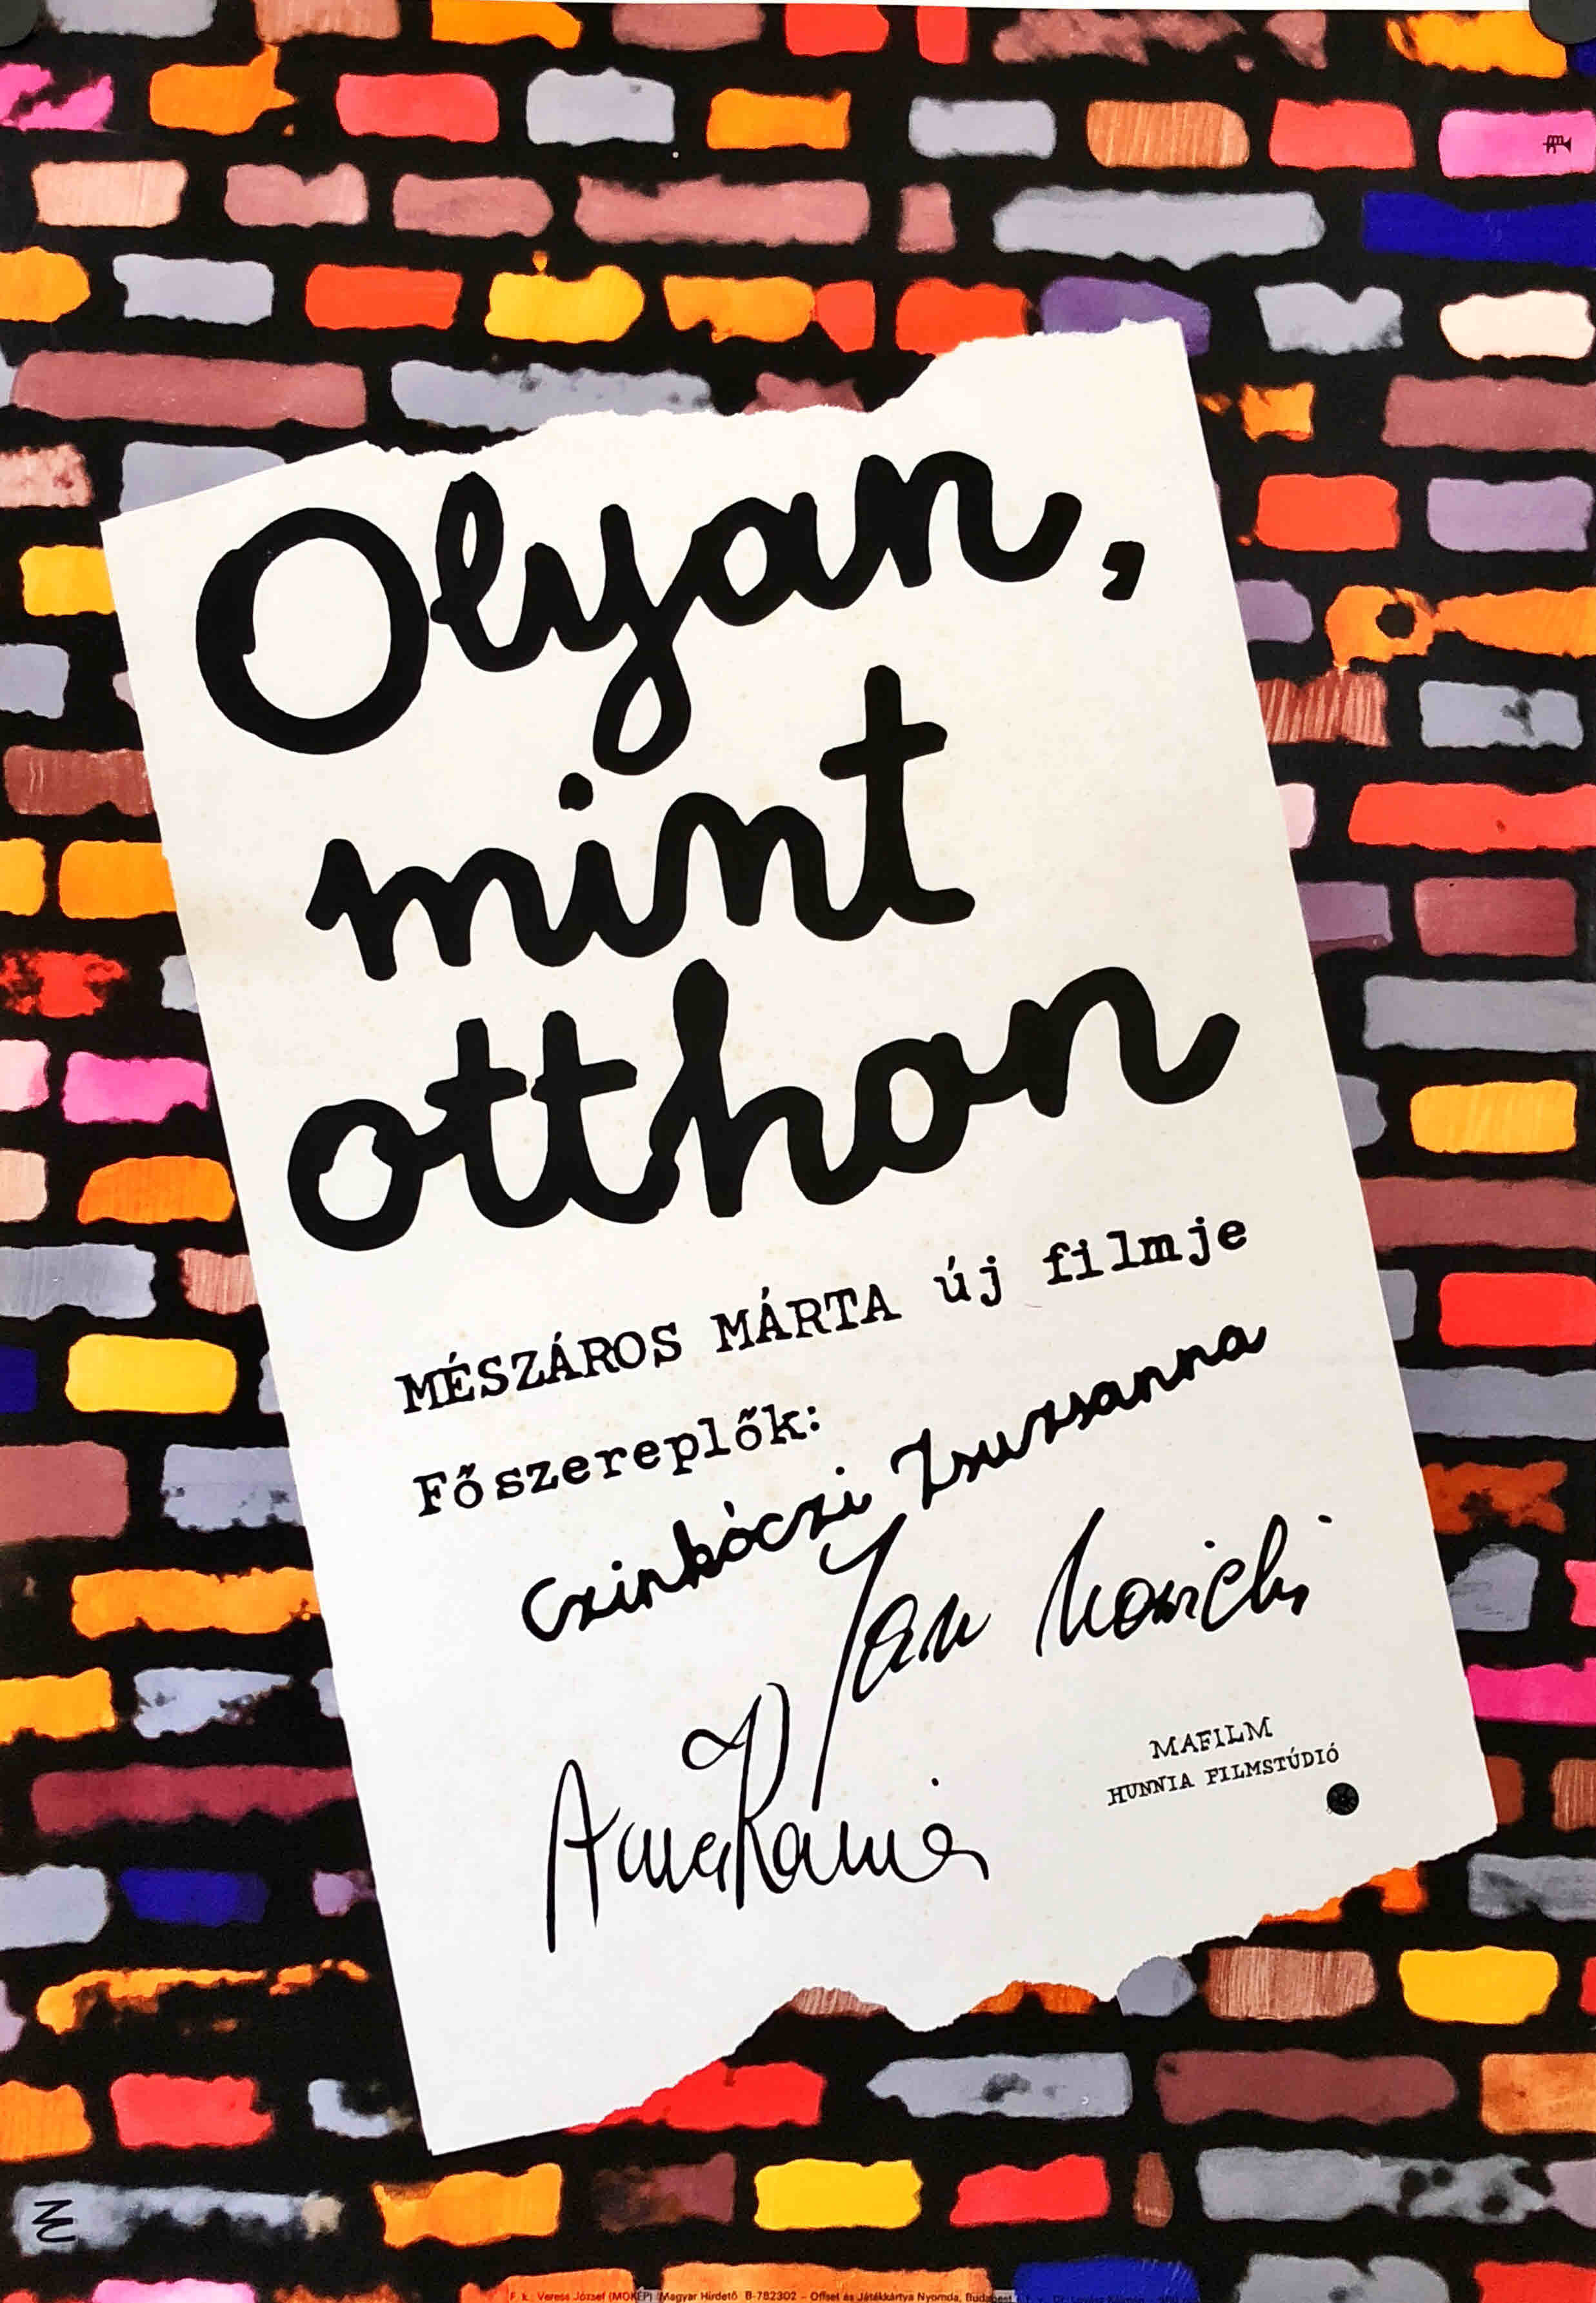 Olyan,
mint
otthon
MÉSZÁROS MÁRTA új filmje
Főszereplők:
Czinkóczi Zsuzsanna
Jan Nowicki
Anna Karina
MAFILM
HUNNIA FILMSTÚDIÓ
F. k.: Veress József (MOKÉP) Magyar Hirdető B-782302 – Offset és Játékkártya Nyomda, Budapest